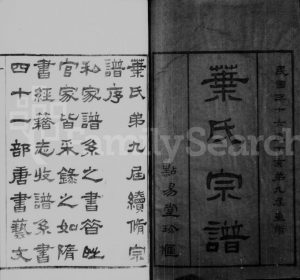 葉氏宗譜
點易堂珍藏
葉氏第九屆續脩宗
譜序
私家譜系之書昔時
官家皆采錄之如隋
書經籍志收譜系書
四十一部唐書藝文
FamilySearch